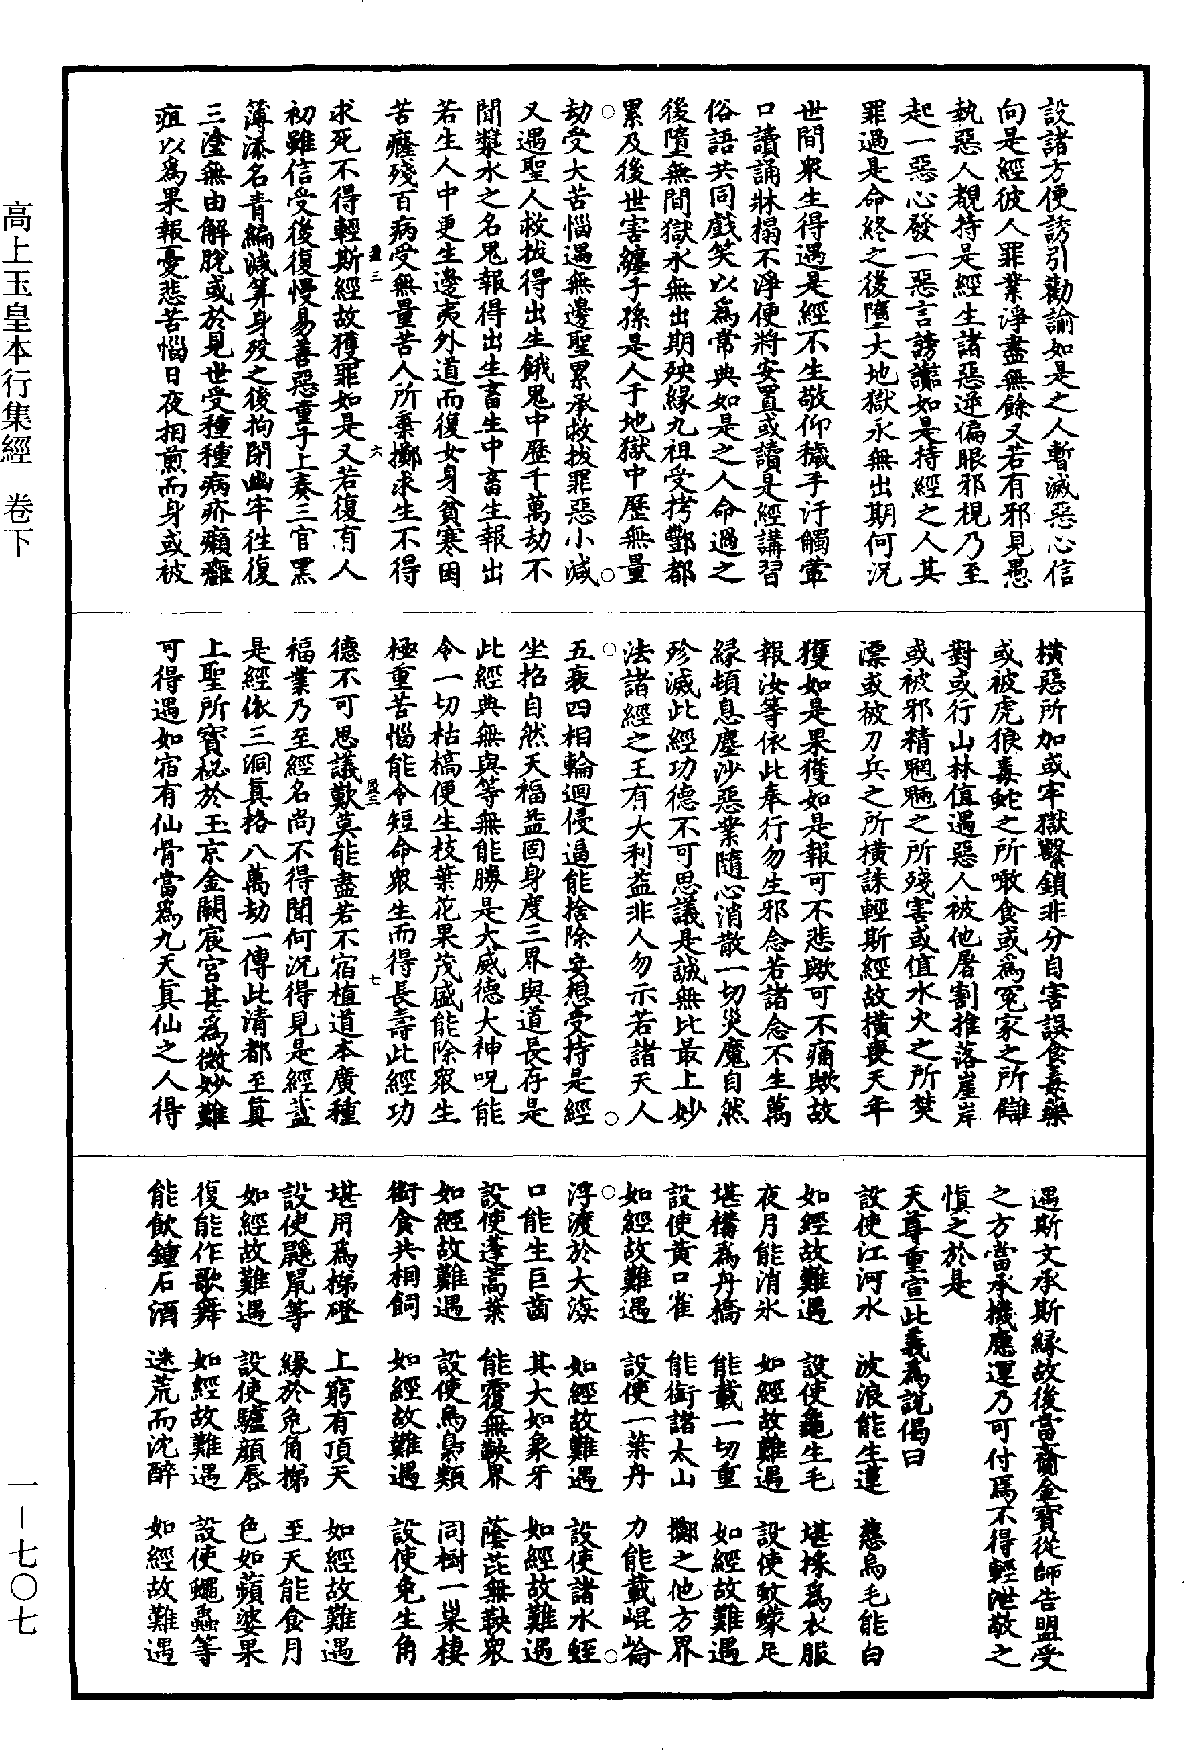 設諸方便誘引勸諭如是之人暫滅惡心信
向是經彼人罪業淨盡無餘又若有邪見愚
執惡人覩持是經生諸惡逆偏眼邪視乃至
起一惡心發一惡言謗讟如是持經之人其
罪過是命終之後墮大地獄永無出期何況
世間衆生得遇是經不生敬仰穢手汙觸葷
口讀誦牀榻不淨便將安置或讀是經講習
俗語共同戲笑以爲常典如是之人命過之
後墮無間獄永無出期殃緣九祖受拷酆都
累及後世害纏子孫是人于地獄中歷無量
劫受大苦惱遇無邊聖累承救拔罪惡小減
又遇聖人救拔得出生餓鬼中歷千萬劫不
聞漿水之名鬼報得出生畜生中畜生報出
若生人中更生邊夷外道而復女身貧寒困
苦癃殘百病受無量苦人所棄擲求生不得
求死不得輕斯經故獲罪如是又若復有人
初雖信受後復慢易善惡童子上奏三官黑
薄添名青編減算身歿之後拘閉幽牢往復
三塗無由解脫或於見世受種種病疥癩癰
疽以爲果報憂悲苦惱日夜相煎而身或被
橫惡所加或牢獄繫鎖非分自害誤食毒藥
或被虎狼毒蛇之所噉食或爲冤家之所讎
對或行山林值遇惡人被他屠割推落崖岸
或被邪精魍魎之所殘害或值水火之所焚
漂或被刀兵之所橫誅輕斯經故橫喪天年
獲如是果獲如是報可不悲歟可不痛歟故
報汝等依此奉行勿生邪念若諸念不生萬
緣頓息塵沙惡業隨心消散一切災魔自然
殄滅此經功德不可思議是誠無比最上妙
法諸經之王有大利益非人勿示若諸天人
五衰四相輪迴侵逼能捨除妄想受持是經
坐招自然天福益固身度三界與道長存是
此經典無與等無能勝是大威德大神呪能
令一切枯槁便生枝葉花果茂盛能除衆生
極重苦惱能令短命衆生而得長壽此經功
德不可思議歎莫能盡若不宿植道本廣種
福業乃至經名尚不得聞何況得見是經蓋
是經依三洞真格八萬劫一傳此清都至真
上聖所寶祕於玉京金闕宸宮甚爲微妙難
可得遇如宿有仙骨當爲九天真仙之人得
遇斯文承斯緣故後當齎金寶從師告盟受
之方當承機應運乃可付焉不得輕泄敬之
愼之於是
天尊重宣此義爲說偈曰
設使江河水　波浪能生蓮　慈烏毛能白
如經故難遇　設使龜生毛　堪搽爲衣服
夜月能消氷　如經故難遇　設使蚊蠓足
堪構爲舟橋　能載一切重　如經故難遇
設使黃口雀　能銜諸太山　擲之他方界
如經故難遇　設使一葉舟　力能載崐崙
浮渡於大海　如經故難遇　設使諸水蛭
口能生巨齒　其大如象牙　如經故難遇
設使蓬蒿葉　能覆無鞅界　蔭芘無鞅衆
如經故難遇　設使烏梟類　同樹一巢棲
銜食共相飼　如經故難遇　設使兔生角
堪用爲梯磴　上窮有頂天　如經故難遇
設使鼷鼠等　緣於兔角梯　至天能食月
如經故難遇　設使驢顏唇　色如蘋婆果
復能作歌舞　如經故難遇　設使蠅蟲等
能飲鍾石酒　迷荒而沈醉　如經故難遇
高上玉皇本行集經　卷下
一—七〇七